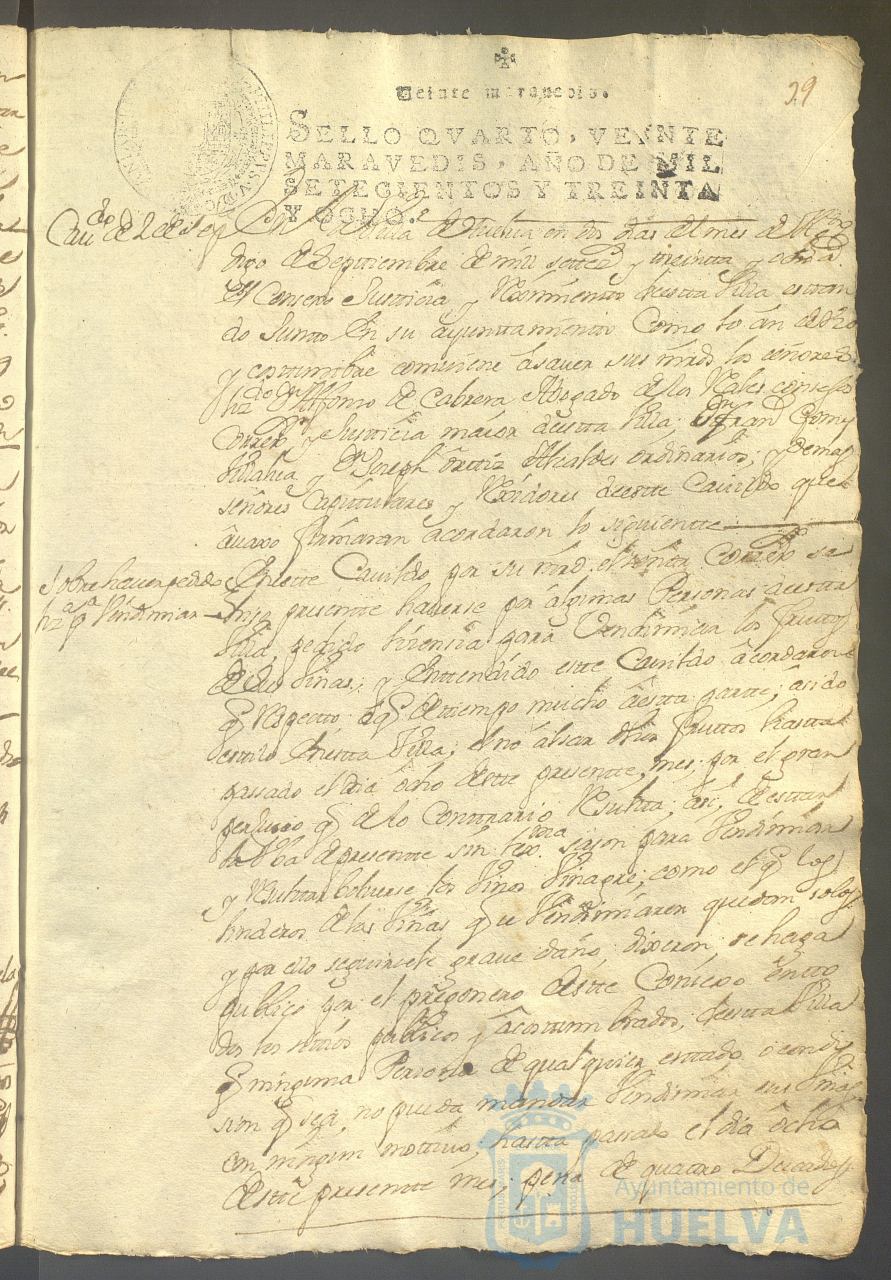 29
Veinte maravedis.
SELLO QVARTO, VEINTE
MARAVEDIS, AÑO DE MIL
SETECIENTOS Y TREINTA
Y OCHO.
Cauildo de 2 de
En la Villa de Huelua en dos dias del mes de
digo de Septiembre de mill settez.s y treintta y ocho a.s
El Conssejo Justicia y Reximiento de estta Villa estan
do Juntto En su ayuntamiento Como lo an de
y costtumbre comuiene â sauer sus mrds los señores
Liz.do Dn Alfonso de Cabrera Abogado de los Rales consejos
Correxr y Justticia maior de estta Villa; Dn Fran.co Gomez
y Dn Joseph Orttiz Alcaldes ordinarios; y demas
señores Capitulares y Rexidores de estte Cauildo que
âuaxo firmaran acordaron lo siguientte
Sobre hauer pedido
liz.a p.a Vendimiar
En estte Cauildo por su mrd. el señor Correxr se
hizo presentte hauerse por algunas Personas de estta
Villa pedido lizensia para Vendimiar los fruttos
de sus Viñas; y Enttendido estte Cauildo âcordaron
q Respectto â q de tiempo mucho â estta partte, â sido
estilo En estta Villa, el no alsar dhos fruttos hastta
passado el dia ôcho de estte presentte mes; por el gran
perjuisio q de lo Conttrario Resultta asi, de esttar
la Vba de presentte sin sason para Vendimiar
y Resulttar bolverse los Vinos Vinagre; como el q los
linderos de las Viñas q se Vendimiaren quedan solos
y por ello seguirsele graue daño; dixeron, se haga
publico por el pregonero de estte Consejo en tto
dos los sittios publicos y âcosttumbrados, de estta Villa
q ninguna Persona de qualquier esttado o condi
sion q sea, no pueda mandar Vendimiar sus Viñas
con ningun mottiuo, hastta passado el dia ôcho
de estte presentte mes; pena de quatro Ducados
Ayuntamiento de
HUELVA